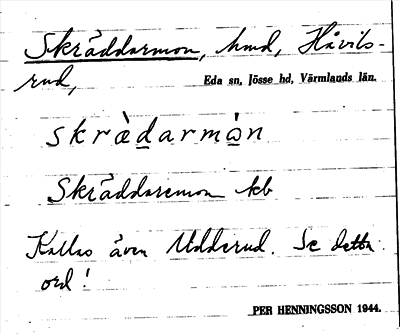 Skräddarmon, hmd, Håvils-
rud, Eda sn, Jösse hd, Värmlands län.
skrɛ̀d̲armò̲n
Skräddaremon kb
Kallas även Udderud. Se detta
ord!
PER HENNINGSSON 1944.